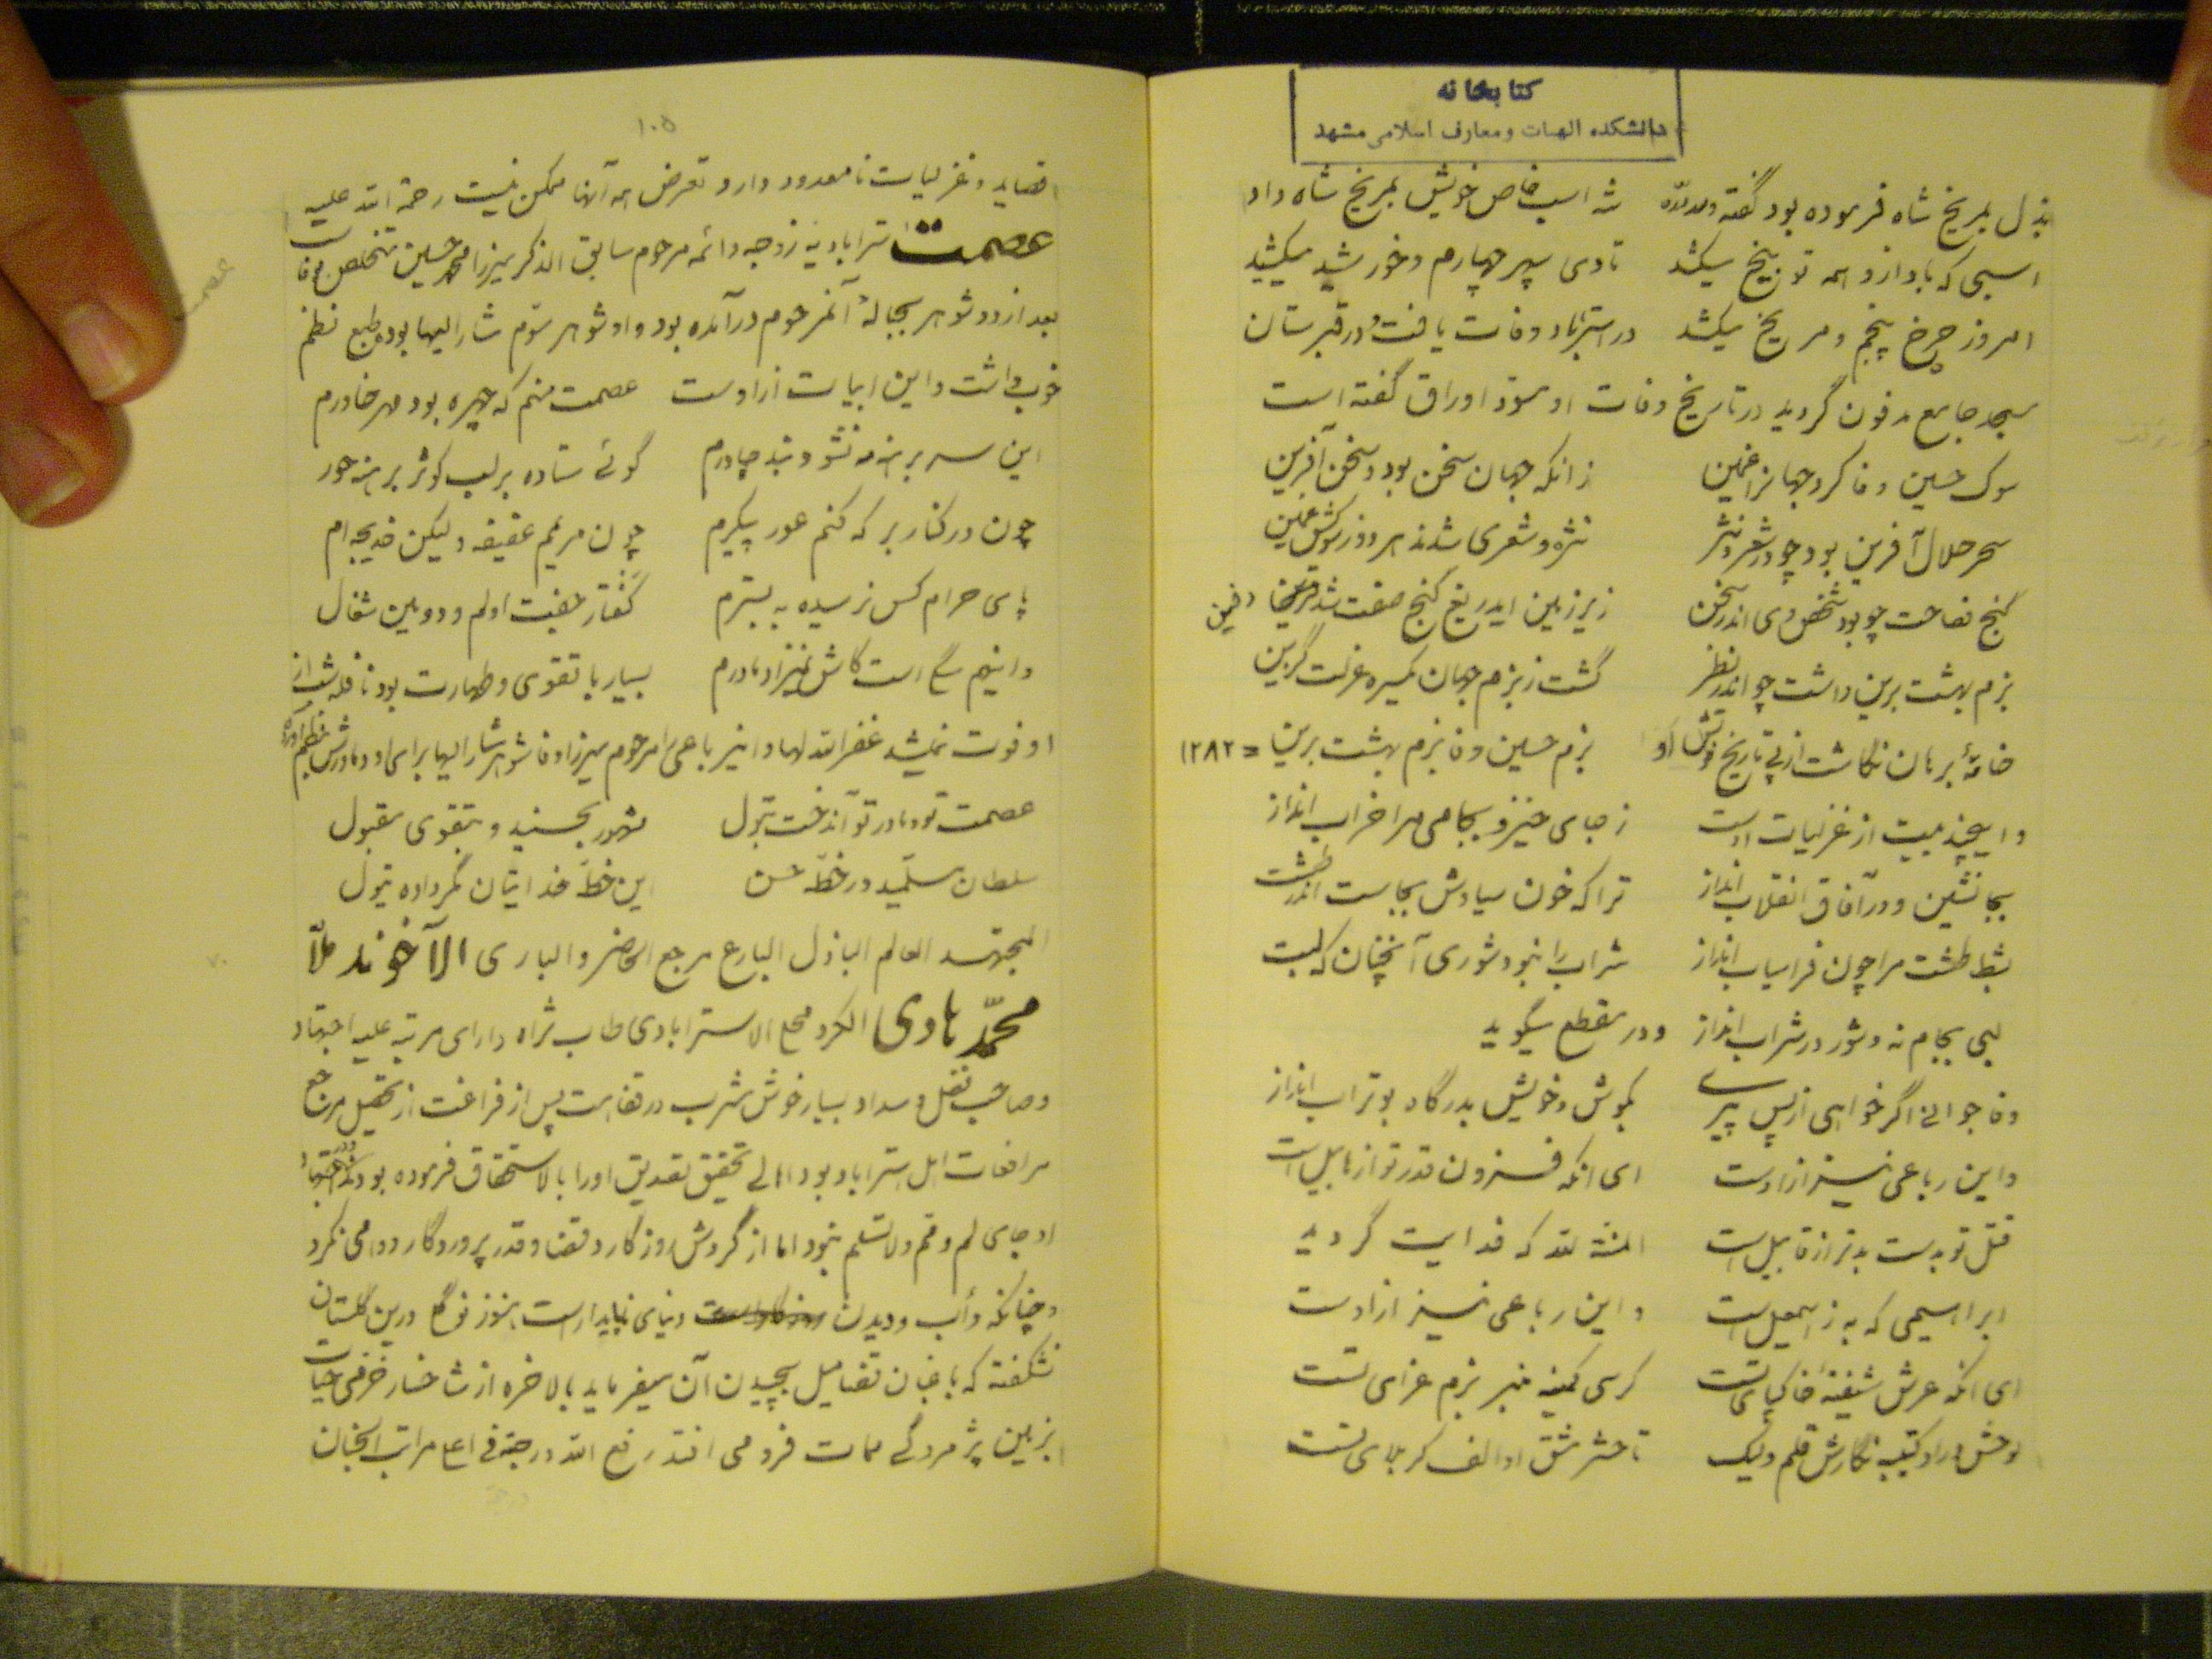 کتابخانه
دانشکده الهیات و معارف اسلامی مشهد
بذل بمریخ شاه فرموده بود گفته ولله درّه شه اسب خاص خویش بمریخ شاه داد
اسبی که باد ازو همه توبیخ میکشد تا دی سپهر چهارم و خورشید میکشید
امروز چرخ پنجم و مریخ میکشد در استرآباد وفات یافت و در قبرستان
مسجد جامع مدفون گردید در تاریخ وفات او مسوّد اوراق گفته است
سوک حسین وفا کرد جهانرا غمین زانکه جهان سخن بود و سخن آفرین
سحر حلال آفرین بود چو در شعر و نثر نثره و شعری شدند هر دو ز سوکش غمین
گنج فصاحت چو بود شخص وی اندر سخن زیر زمین ایدریغ گنج صفت شد دفین
بزم بهشت برین داشت چو اندر نظر گشت ز بزم جهان یکسره عزلت گزین
خامهٔ برهان نگاشت از پی تاریخ فوتش او بزم حسین وفا بزم بهشت برین = ۱۲۸۲
و این چند بیت از غزلیات اوست ز جای خیز و بجامی مرا خراب انداز
بجا نشین و در آفاق انقلاب انداز ترا که خون سیاوش بجاست اندر طشت
بشط طشت مرا چون فراسیاب انداز شراب را نبود شوری آنچنان که لبت
لبی بجام نه و شور در شراب انداز و در مقطع میگوید
وفا جوانی اگر خواهی از پس پیری بکوش و خویش بدرگاه بوتراب انداز
و این رباعی نیز از اوست ای آنکه فزون قدر تو از هابیل است
قتل تو بدست بدتر از قابیل است المنة لله که فدایت گردید
ابراهیمی که به ز اسمعیل است و این رباعی نیز از اوست
ای آنکه عرش شیفتهٔ خاکپای تست کرسی کمینه منبر بزم عزای تست
لوحش دراد کتیبه نگارش قلم ولیک تا حشر مشق او الف کربلای تست
۱۰۵
قصاید و غزلیات نامعدود دارد تعرض همه آنها ممکن نیست رحمة الله علیه
عصمت استرابادیه زوجه دائمه مرحوم سابق الذکر میرزا محمد حسین متخلص بوفا
بعد از دو شوهر بحبالهٔ آنمرحوم درآمده بود و او شوهر سوّم مشار الیها بود طبع نظم
خوب داشت و این ابیات از اوست عصمت منم که چهره بود مهر خاورم
این سر برهنه مه نشود بند چادرم گوئی ستاده بر لب کوثر برهنه حور
چون در کنار برکه کنم عور پیکرم چون مریم عفیفه ولیکن خدیجه ام
پای حرام کس نرسیده به بسترم گفتار جفت اولم و دومین شغال
و اینهم سگ است کاش نمیزاد مادرم بسیار با تقوی و طهارت بود نافله شب از
او فوت نمیشد غفر الله لها و اینرباعی را مرحوم میرزا وفا شوهر مشار الیها برای او و مادرش بنظم آورده
عصمت تو و مادر تو آندخت بتول مشهور بحسنید و بتقوی مقبول
سلطان مسلّمید در خطّه حسن این خطّه خدایتان مگر داده تیول
المجتهد العالم الباذل البارع مرجع الحاضر و البادی الآخوند ملّا
محمّد هادی الکرد محله الاسترابادی طاب ثراه دارای مرتبه علیه اجتهاد
و صاحب فضل و سداد بسیار خوش مشرب در نقاهت پس از فراغت از تحصیل مرجع
مرافعات اهل استراباد بود اهالی تحقیق تصدیق او را بالاستحقاق فرموده بودند و در اجتهاد
او جای لم و فم و لا تسلم نبود اما از گردش روزگار و قضا و قدر پروردگار دوامی نکرد
و چنانکه دأب و دیدن روزگار است دنیای ناپایدار است هنوز نوگل درین گلستان
نشکفته که باغبان تقاضا میل بچیدن آن میفرماید بالاخره از شاخسار خرمی حیات
بزمین پژمردگی ممات فرو می افتد رفع الله درجته فی اعلی مراتب الجنان
عصمت